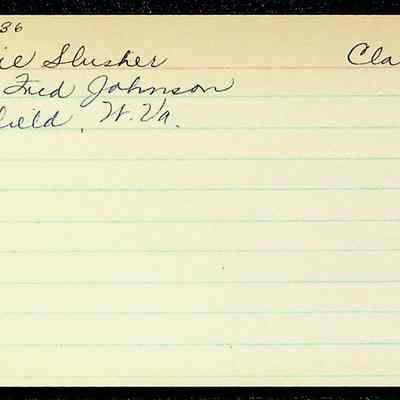 36
ie Slusher Cla
Fred Johnson
field, W. Va.